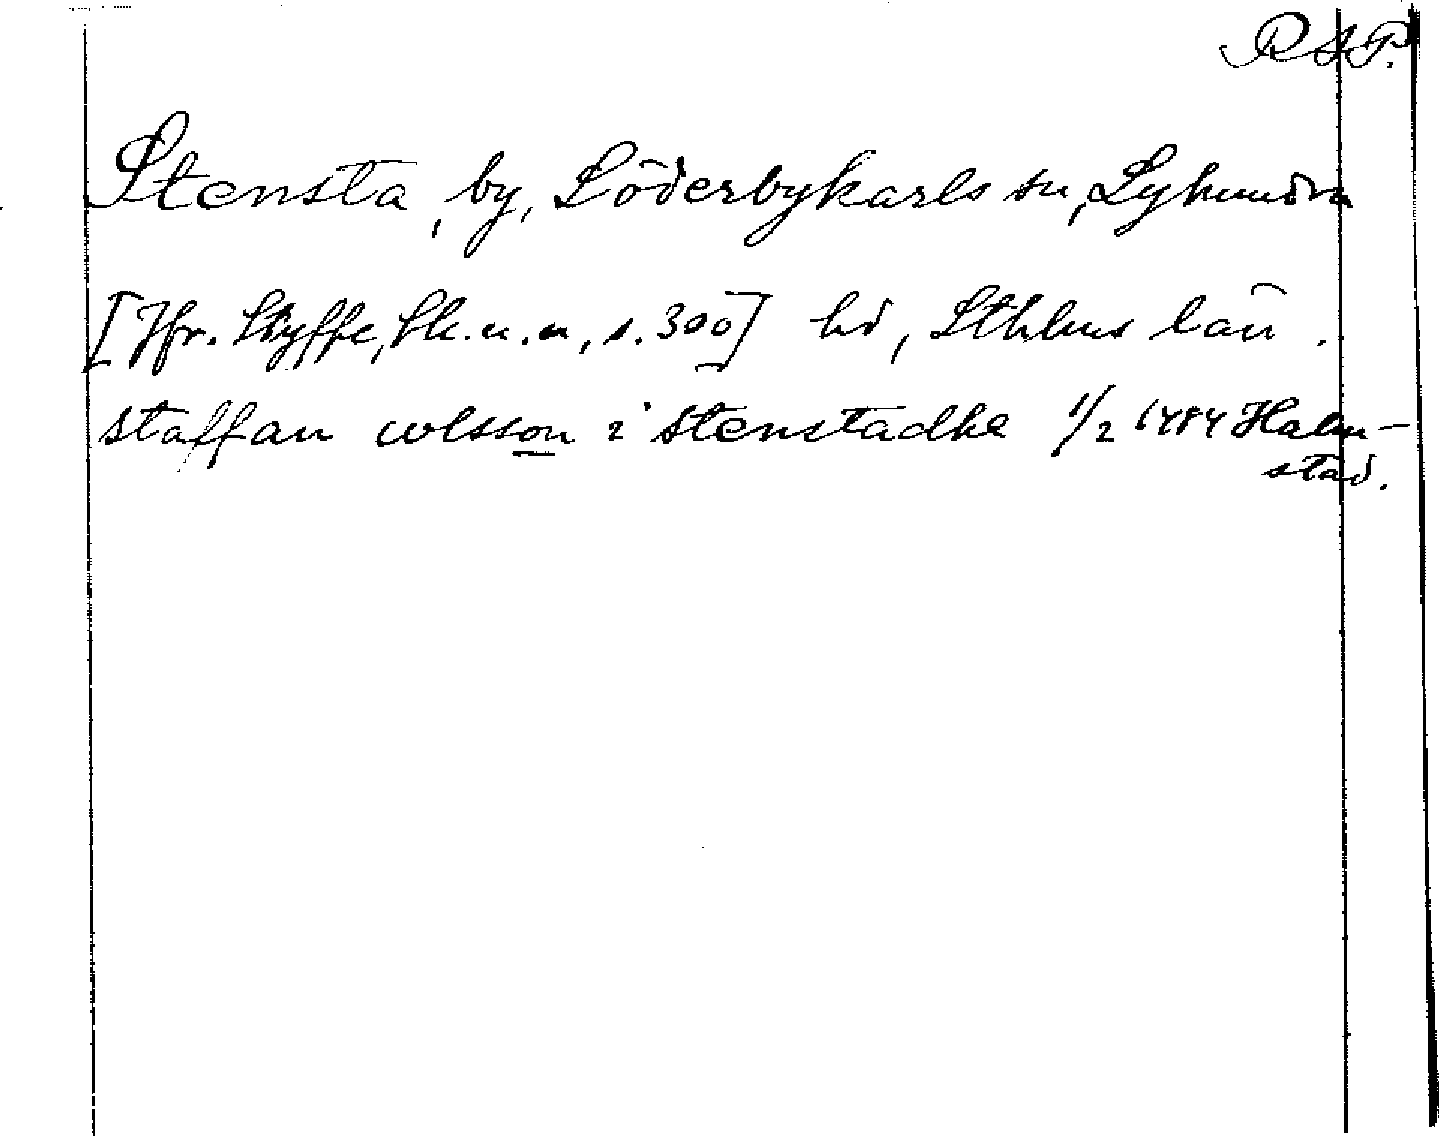 RAP.
Stensta, by, Söderbykarls sn, Lyhundra
[Jfr. Styffe, Sk. u. u, s. 300] hd, Sthlms län.
staffan wlsson i stenstadhe 1/2 1484 Halm-
stad.